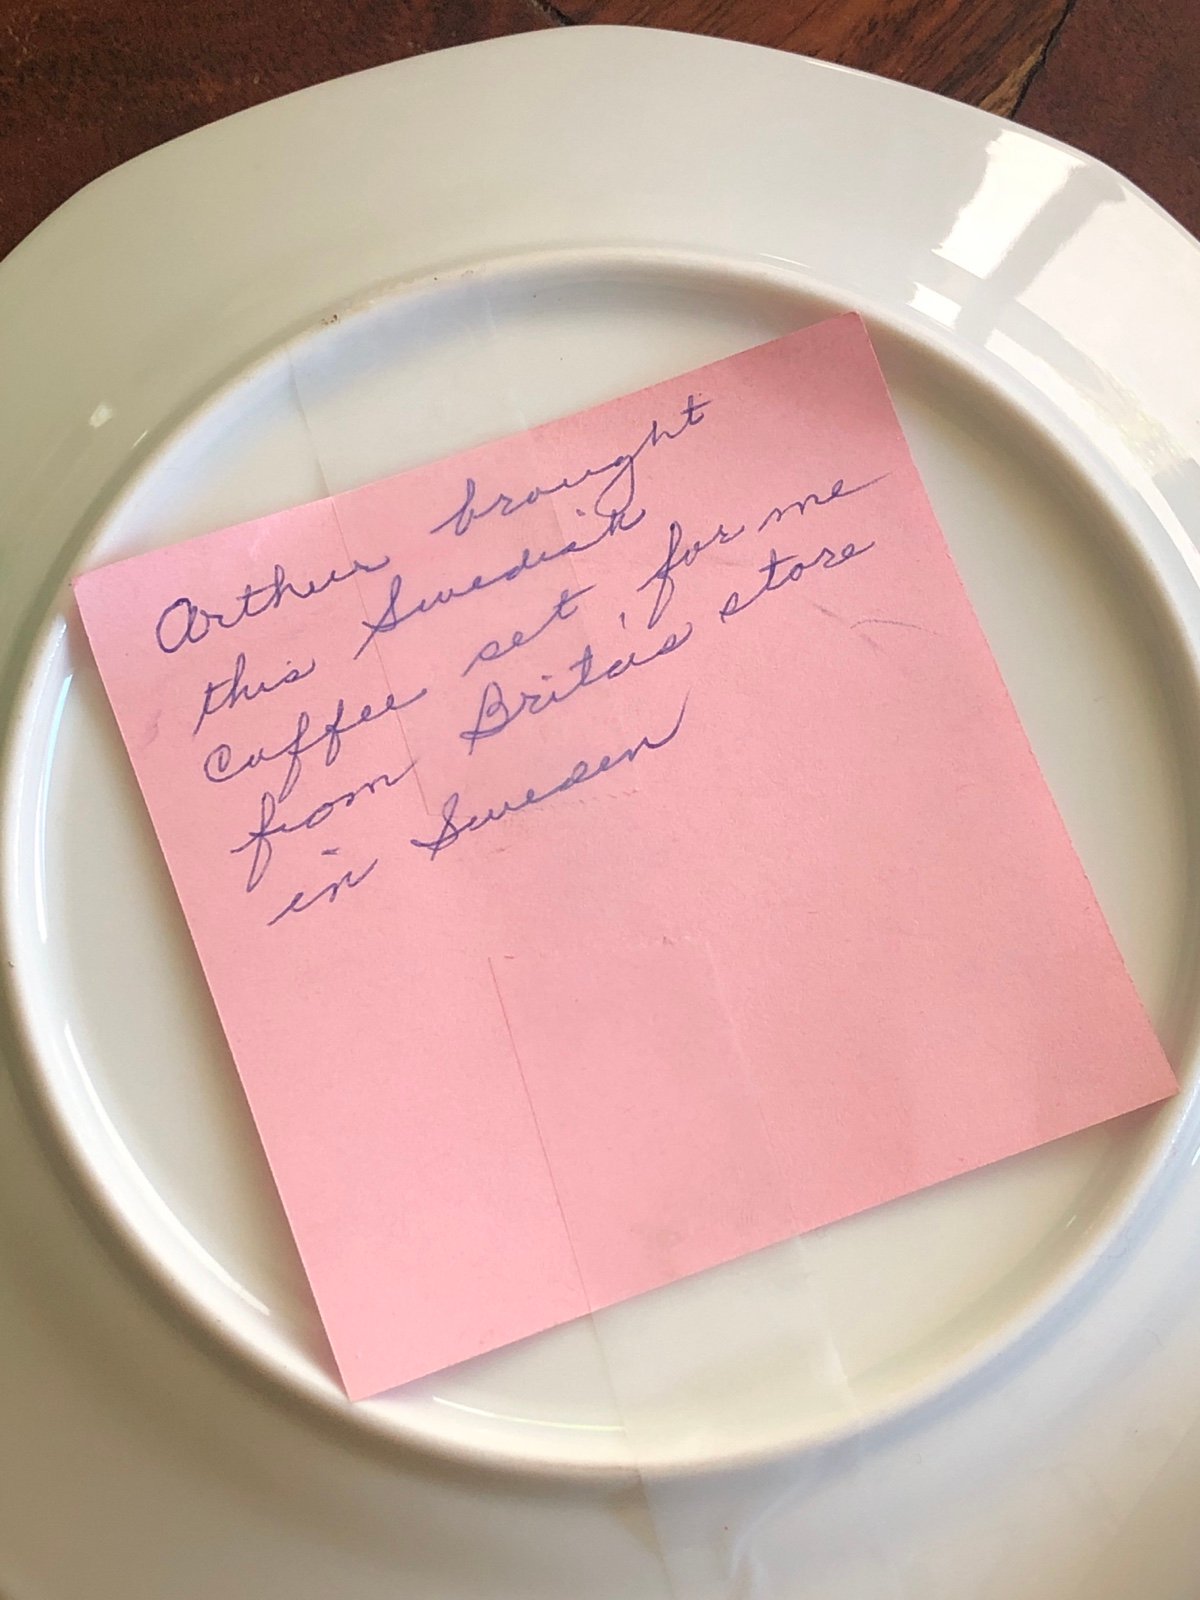 Arthur brought
this Swedish
coffee set, for me
from Brita's store
in Sweden